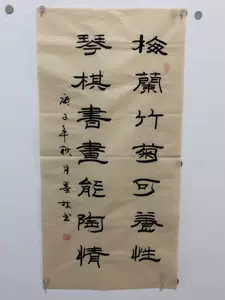 梅蘭竹菊可養性
琴棋書畫能陶情
庚子年秋月